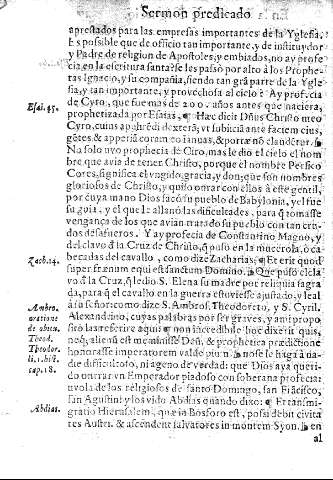 Sermon predicado
aprestados para las empresas importantes de la Yglesia.
Es possible que de officio tan importante, y de instituydor
y Padre de religion de Apostoles, y embiados, no ay profe
cia en la escritura santa? se les passò por alto à los Prophe
tas Ignacio, y su compañia, siendo tan grã parte de la Ygle
sia, y tan importante, y provechosa al cielo? Ay profecia
de Cyro, que fue mas de 200. años antes que naciera,
Esai. 45.
prophetizada por Esaias, ¶ Hæc dicit Dñus Christo meo
Cyro, cuius apprehẽdi dexterã, vt subiiciã ante faciem eius,
gẽtes, & aperiã coram eo ianuas, & portæ nõ claudẽtur.
No solo uvo prophecia de Ciro, mas le dio el cielo el nom
bre que avia de tener Christo, porque el nombre Persico
Cores, significa el vngido, gracia, y don; que son nombres
gloriosos de Christo, y quiso onrrar con ellos à este gentil,
por cuya mano Dios sacó su pueblo de Babylonia, y el fue
su guia, y el que le allanó las dificultades, para q̃ tomasse
vengança de los que avian tratado su pueblo con tan cru
dos desafueros. Y ay profecia de Constantino Magno, y
del clavo đ la Cruz de Christo, q̃ puso en la
Zach. 14.
becadas del cavallo, como dize Zacharias; ¶ Et erit quod
super frænum equi est sanctum Domino. Que puso el cla
vo đ la Cruz, q̃ le dio S. Elena su madre por reliquia sagra
da, para q̃ el cavallo en la guerra estuviesse ajustado, y leal
Ambro.
oratione
de obitu.
Theod.
Theodor.
li. 1. hist.
cap. 18.
à su señor: como dize S. Ambros. Theodoreto, y S. Cyril.
Alexandrino, cuyas palabras por ser graves, y a mi propo
sito las referire aqui ¶ non incredibile hoc dixerit quis,
neq; alienũ est meminisse Deũ, & prophetica prædictione
honorasse imperatorem valde pium. no se le hagà à na
die dificultoso, ni ageno de verdad: que Dios aya queri
do onrrar vn Emperador piadoso con soberana profecia:
de los religiosos de santo Domingo, san Frãcisco,
Abdias.
san Agustin: y los vido Abdias quando dixo: ¶ Et transmi
gratio Hierusalem, quæ in Bosforo est, possidebit civita
tes Austri. & ascendent salvatores in montem Syon. en
al